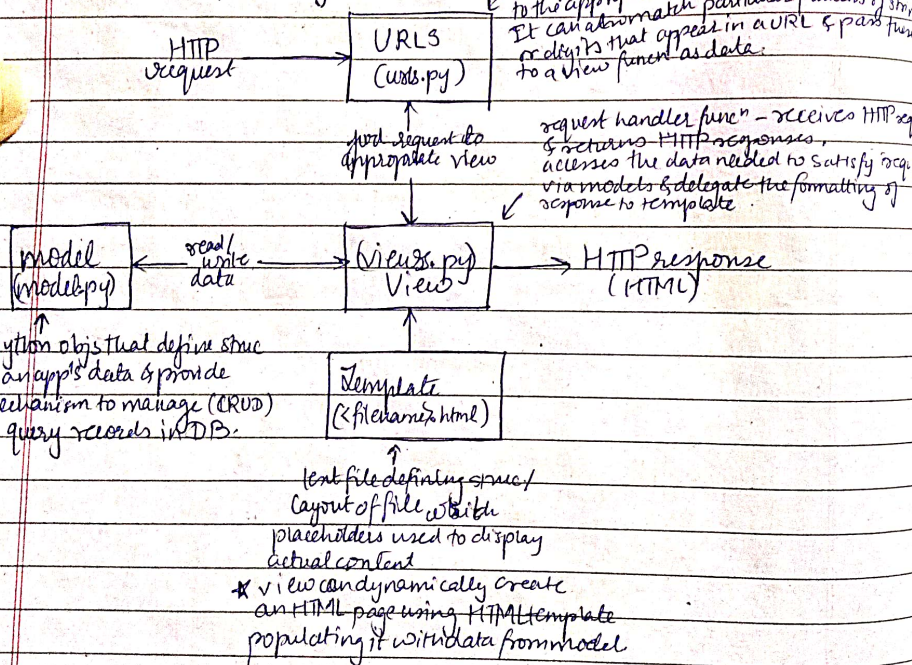 to the app
It can also match
or digits that appear in a URL & pass
to a view funcn as data.
URLS
(urls.py)
HTTP
request
fwd request to
appropriate view
request handler funcn – receives HTTP req
& returns HTTP responses,
accesses the data needed to satisfy requ
via models & delegate the formatting of
response to template.
model
(model.py)
read/
write
data
(views.py)
View
HTTP response
(HTML)
ython objs that define struc
an app's data & provide
echanism to manage (CRUD)
query records in DB.
Template
(<filename>.html)
text file defining struc/
layout of file with
placeholders used to display
actual content
* view can dynamically create
an HTML page using HTML template
populating it with data from model